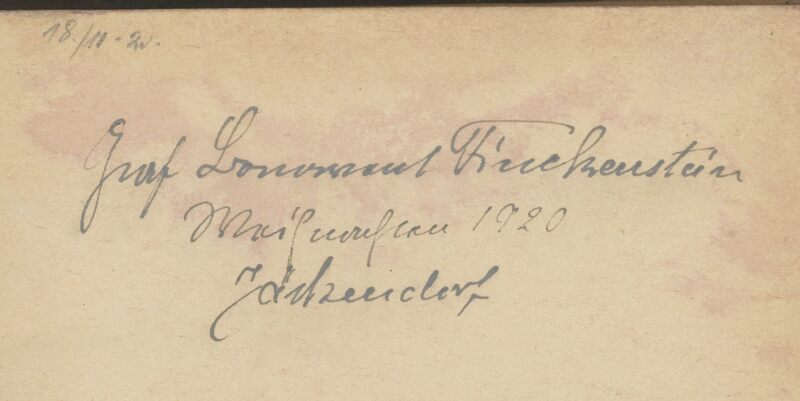 18./11.20.
Graf Bonavent Finckenstein
Weihnachten 1920
Jäskendorf